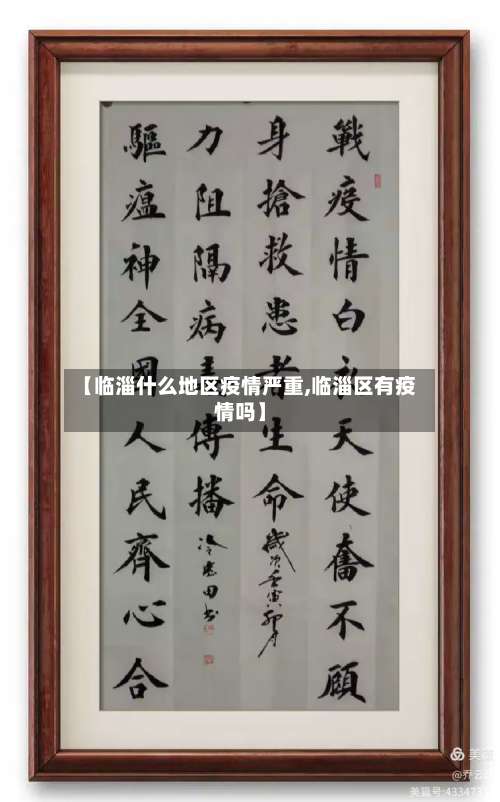 戰疫情白衣天使奮不顧
身搶救患者生命
歲次壬寅卯月
驅瘟神全國人民齊心合
力阻隔病毒傳播
【临淄什么地区疫情严重,临淄区有疫
情吗】